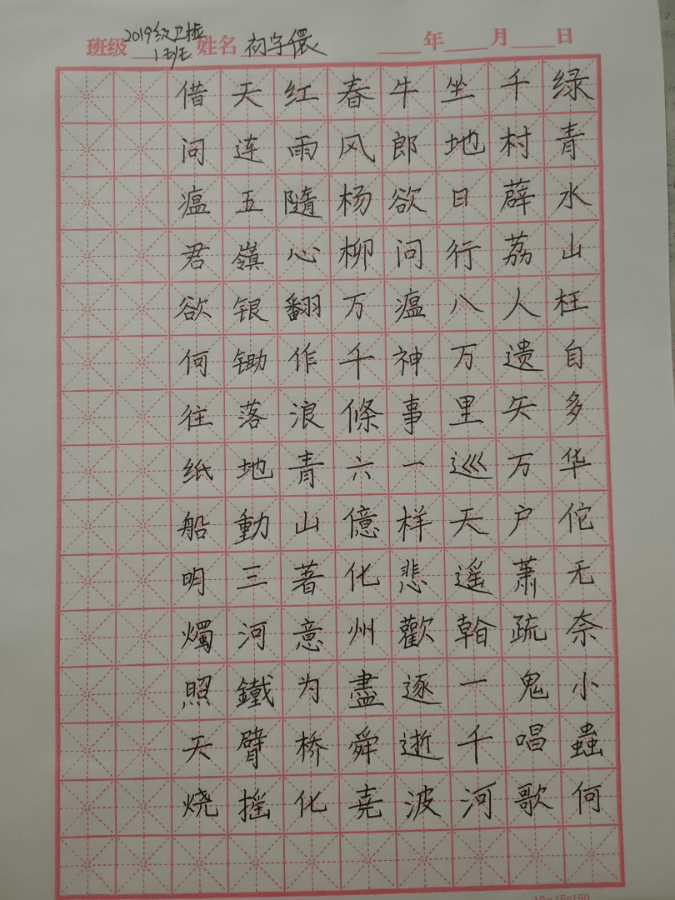 班级 2019级卫检 姓名 初宇儇 年 月 日
1班
绿青水山枉自多华佗无奈小蟲何
千村薜荔人遗矢万户萧疏鬼唱歌
坐地日行八万里巡天遥一千河
牛郎欲问瘟神事一样悲歡逐逝波
春风杨柳万千條六億化州盡舜尭
红雨隨心翻作浪青山著意为桥化
天连五嶺银锄落地動三河鐵臂摇
借问瘟君欲何往纸船明燭照天烧